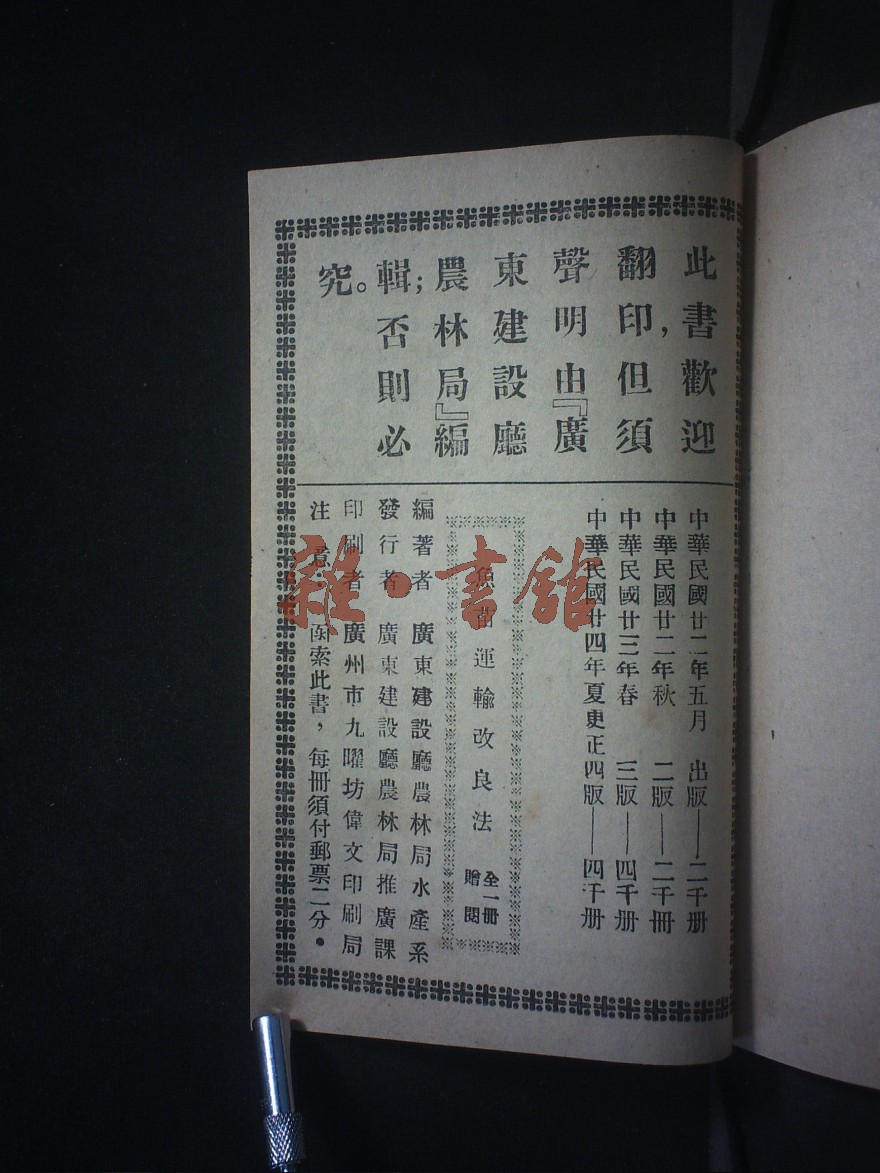 此書歡迎
翻印，但須
聲明由『廣
東建設廳
農林局』編
輯；否則必
究。
中華民國廿二年五月 出版——二千册
中華民國廿二年秋 二版——二千冊
中華民國廿三年春 三版——四千册
中華民國廿四年夏更正四版——四千册
魚苗運輸改良法 全一冊
贈閱
編著者 廣東建設廳農林局水產系
發行者 廣東建設廳農林局推廣課
印刷者 廣州市九曜坊偉文印刷局
注意：函索此書，每冊須付郵票二分。
雜·書館